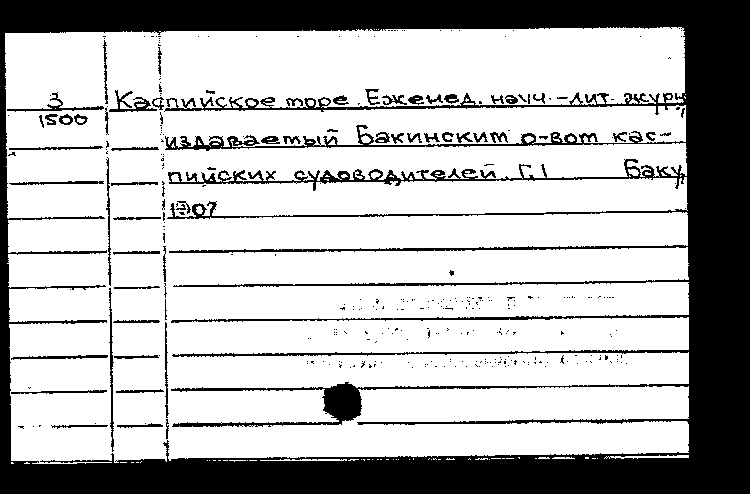 3
1500
Каспийское море. Еженед. науч.-лит. журн,
издаваемый Бакинским о-вом кас-
пийских судоводителей. Г. I Баку,
1907